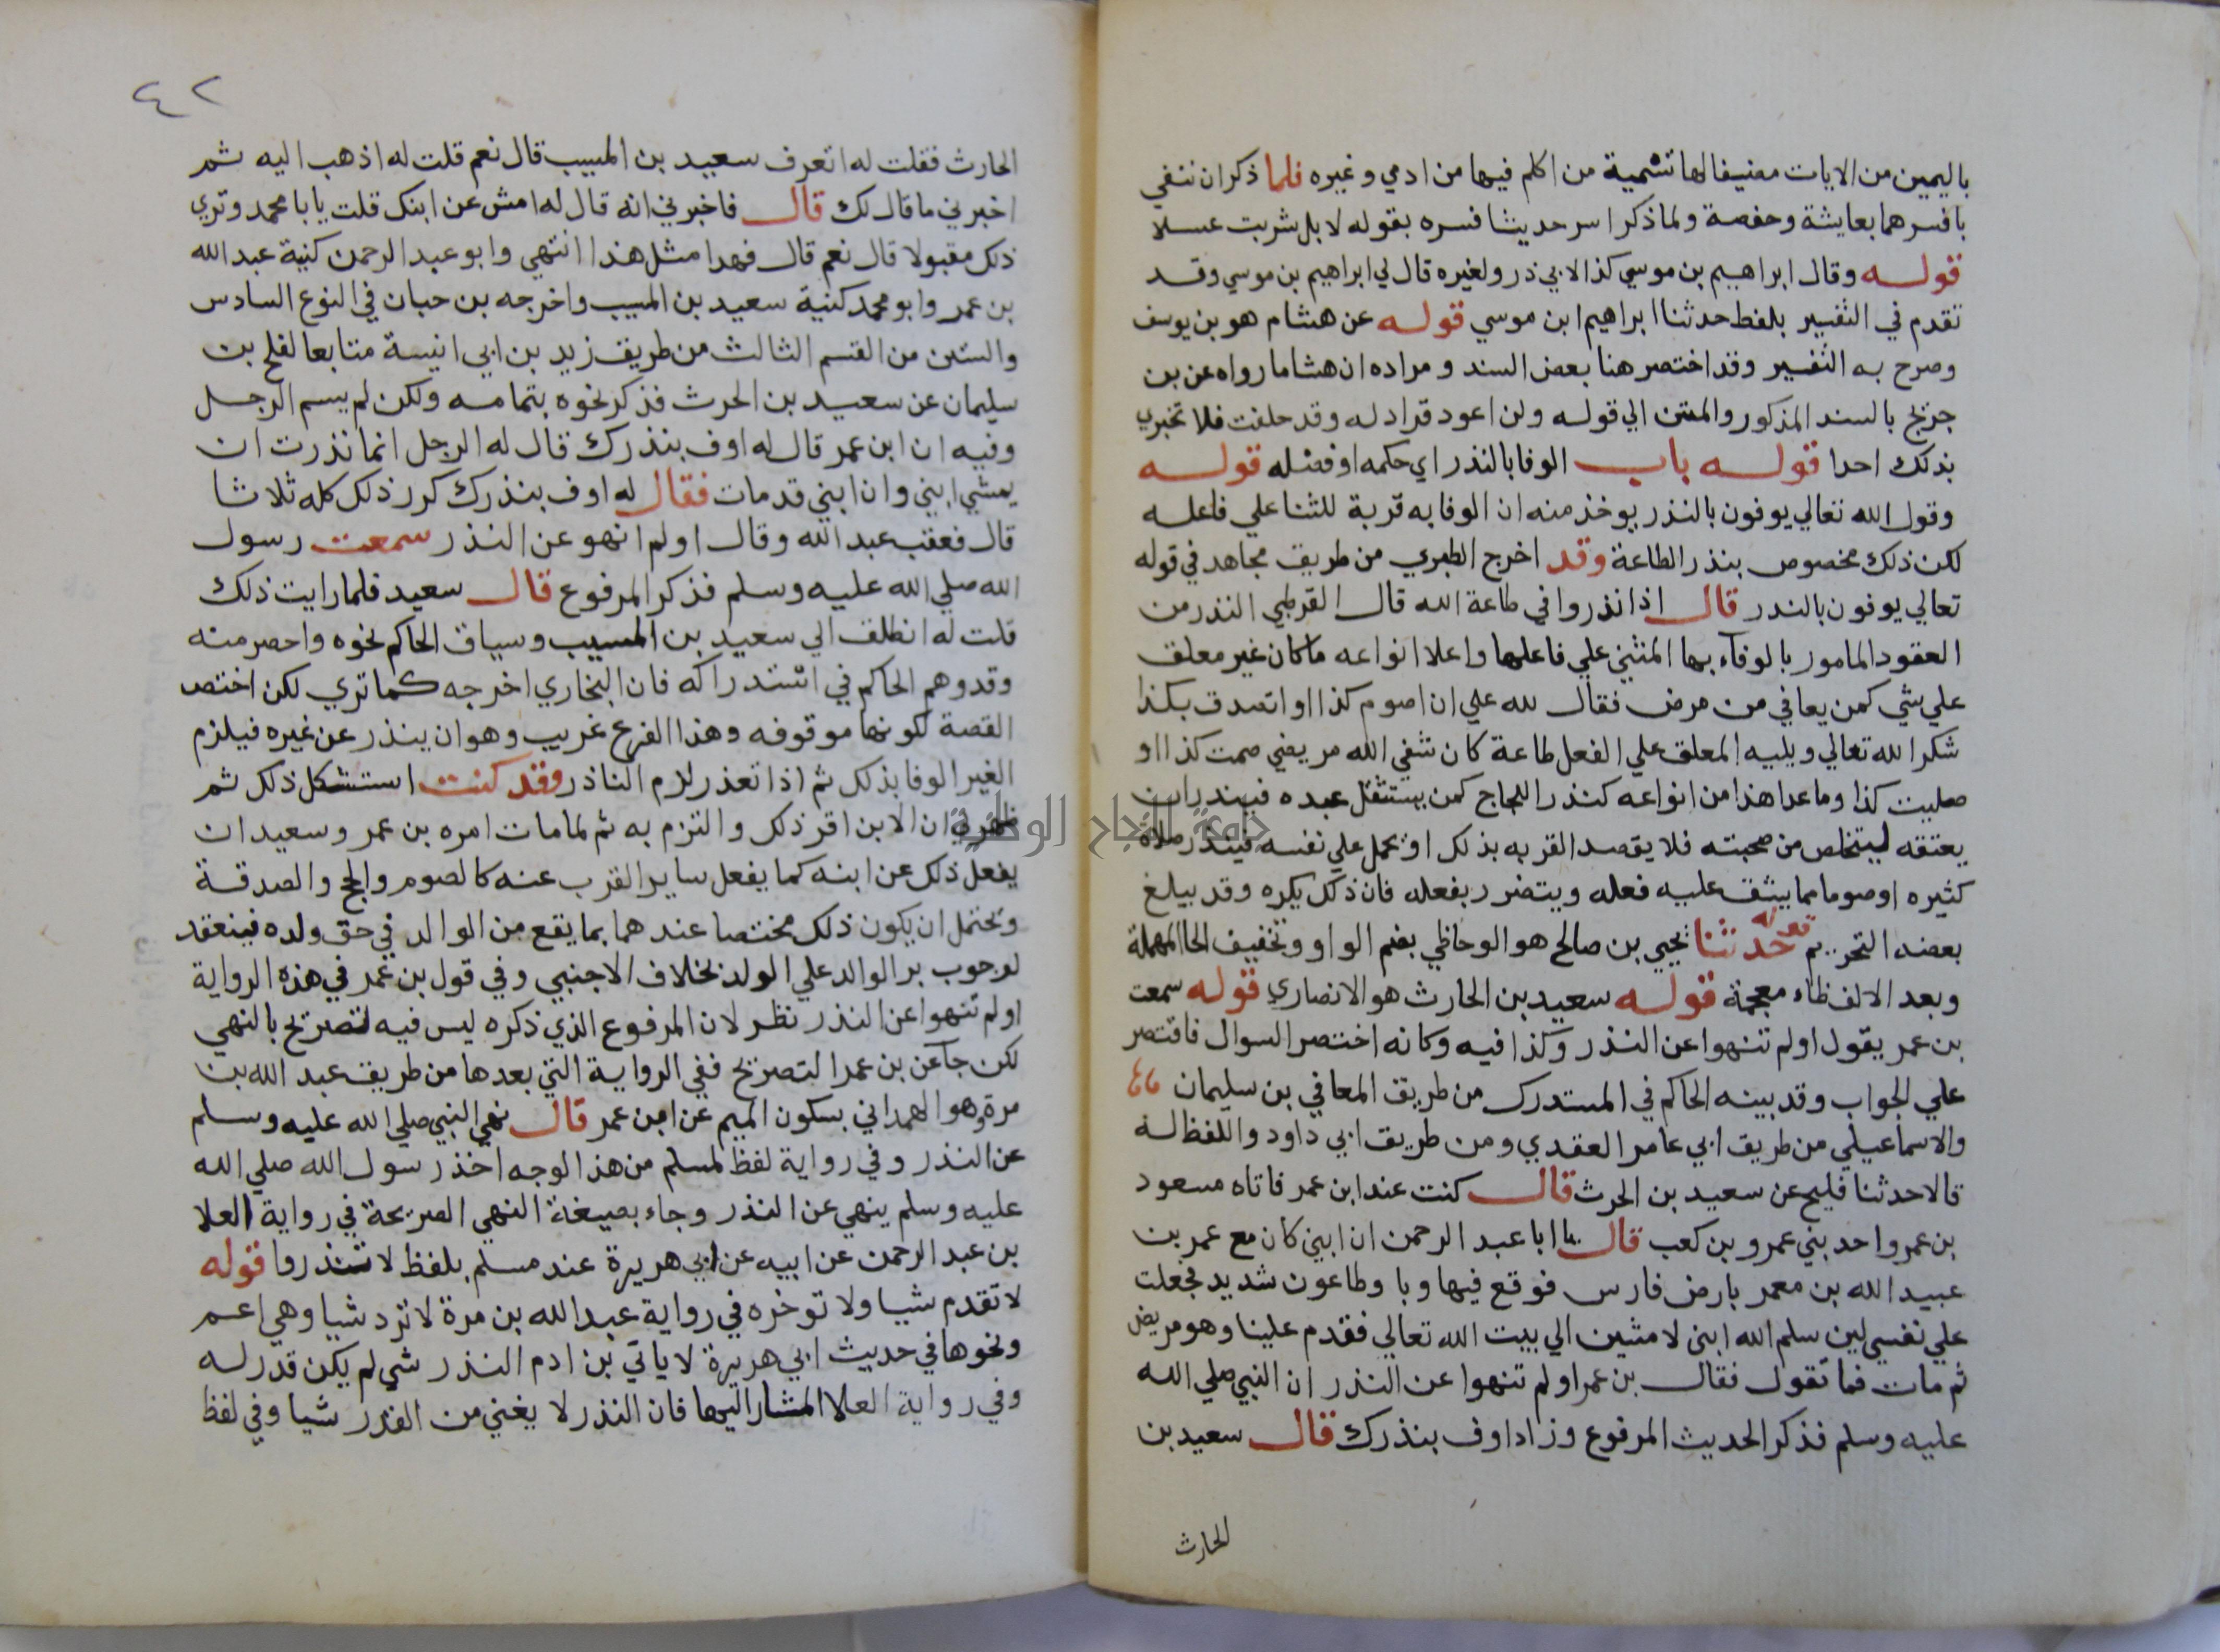 باليمين من الايات مضيفا لها تسمية من اكلم فيها من ادمي وغيره فلما ذكر ان نتفي
بافسرهما بعايشة وحفصة ولما ذكر اسر حديثا فسره بقوله لا بل شربت عسلا
قوله وقال ابراهيم بن موسي كذا لابي ذر ولغيره قال لي ابراهيم بن موسي وقد
تقدم في التفسير بلفظ حدثنا ابراهيم ابن موسي قوله عن هشام هو بن يوسف
وصرح به التفسير وقد اختصر هنا بعض السند ومراده ان هشاما رواه عن بن
جريج بالسند المذكور والمتن الي قوله ولن اعود قراد له وقد حلفت فلا تخبري
بذلك احدا قوله باب الوفا بالنذر اي حكمه او فضله قوله
وقول الله تعالي يوفون بالنذر يوخذ منه ان الوفا به قربة للثنا علي فاعله
لكن ذلك مخصوص بنذر الطاعة وقد اخرج الطبري من طريق مجاهد في قوله
تعالي يوفون بالنذر قال اذا نذروا في طاعة الله قال القرطبي النذر من
العقود المامور بالوفاء بها المثني علي فاعلها واعلا انواعه ما كان غير معلق
علي شي كمن يعافي من مرض فقال لله علي ان اصوم كذا او اتصدق بكذا
شكرا لله تعالي ويليه المعلق علي الفعل طاعة كان شفي الله مريضي صمت كذا او
صليت كذا وما عدا هذا من انواعه كنذر اللجاج كمن يستثقل عبده فينذر ان
يعتقه ليتخلص من صحبته فلا يقصد القربه بذلك او يحمل علي نفسه فينذر صلاة
كثيره او صوما مما يشق عليه فعله ويتضرر بفعله فان ذلك يكره وقد يبلغ
بعضه التحريم قوله حدثنا يحيي بن صالح هو الوحاظي بضم الواو وتخفيف الحا المهملة
وبعد الالف ظاء معجمة قوله سعيد بن الحارث هو الانصاري قوله سمعت
بن عمر يقول اولم تنهوا عن النذر وكذا فيه وكانه اختصر السوال فاقتصر
علي الجواب وقد بينه الحاكم في المستدرك من طريق المعافي بن سليمان
والاسماعيلي من طريق ابي عامر العقدي ومن طريق ابي داود واللفظ له
قالا حدثنا فليح عن سعيد بن الحرث قال كنت عند ابن عمر فاتاه مسعود
بن عمرو احد بني عمرو بن كعب قال يا ابا عبد الرحمن ان ابني كان مع عمر بن
عبيد الله بن معمر بارض فارس فوقع فيها وبا وطاعون شديد فجعلت
علي نفسي لين سلم الله ابني لامشين الي بيت الله تعالي فقدم علينا وهو مريض
ثم مات فما تقول فقال بن عمر اولم تنهوا عن النذر ان النبي صلي الله
عليه وسلم فذكر الحديث المرفوع وزاد اوف بنذرك قال سعيد بن
الحارث
٤٢
الحارث فقلت له اتعرف سعيد بن المسيب قال نعم قلت له اذهب اليه ثم
اخبرني ما قال لك قال فاخبرني انه قال له امش عن ابنك قلت يا با محمد وتري
ذلك مقبولا قال نعم قال فهدا مثل هذا انتهي وابو عبد الرحمن كنية عبد الله
بن عمر وابو محمد كنية سعيد بن المسيب واخرجه بن حبان في النوع السادس
والستين من القسم الثالث من طريق زيد بن ابي انيسة متابعا لفلح بن
سليمان عن سعيد بن الحرث فذكر نحوه بتمامه ولكن لم يسم الرجل
وفيه ان ابن عمر قال له اوف بنذرك قال له الرجل انما نذرت ان
يمشي ابني وان ابني قد مات فقال له اوف بنذرك كرر ذلك كله ثلاثا
قال فغضب عبد الله وقال اولم انهو عن النذر سمعت رسول
الله صلي الله عليه وسلم فذكر المرفوع قال سعيد فلما رايت ذلك
قلت له انطلق الي سعيد بن المسيب وسياق الحاكم نحوه واحصر منه
وقد وهم الحاكم في استدراكه فان البخاري اخرجه كما تري لكن اختص
القصة لكونها موقوفه وهذا الفرع غريب وهو ان ينذر عن غيره فيلزم
الغير الوفا بذلك ثم اذا تعذر لزم الناذر وقد كنت استشكل ذلك ثم
ظهر لي ان الابن اقر ذلك والتزم به ثم لما مات امره بن عمر وسعيد ان
يفعل ذلك عن ابنه كما يفعل ساير القرب عنه كالصوم والحج والصدقة
ويحتمل ان يكون ذلك مختصا عندهما بما يقع من الوالد في حق ولده فينعقد
لوجوب بر الوالد علي الولد بخلاف الاجنبي وفي قول بن عمر في هذه الرواية
اولم تنهوا عن النذر نظر لان المرفوع الذي ذكره ليس فيه تصريح بالنهي
لكن جآ عن بن عمر التصريح ففي الرواية التي بعدها من طريق عبد الله بن
مرة وهو الهمداني بسكون الميم عن ابن عمر قال نهي النبي صلي الله عليه وسلم
عن النذر وفي رواية لفظ لمسلم من هذا الوجه اخذ رسول الله صلي الله
عليه وسلم ينهي عن النذر وجاء بصيغة النهي الصريحة في رواية العلا
بن عبد الرحمن عن ابيه عن ابي هريرة عند مسلم بلفظ لا تنذروا قوله
لا تقدم شيا ولا توخره في رواية عبد الله بن مرة لا ترد شيا وهي اعم
ونحوها في حديث ابي هريرة لا ياتي بن ادم النذر شي لم يكن قدر له
وفي رواية العلا المشار اليها فان النذر لا يغني من القدر شيا وفي لفظ
جامعة النجاح الوطنية